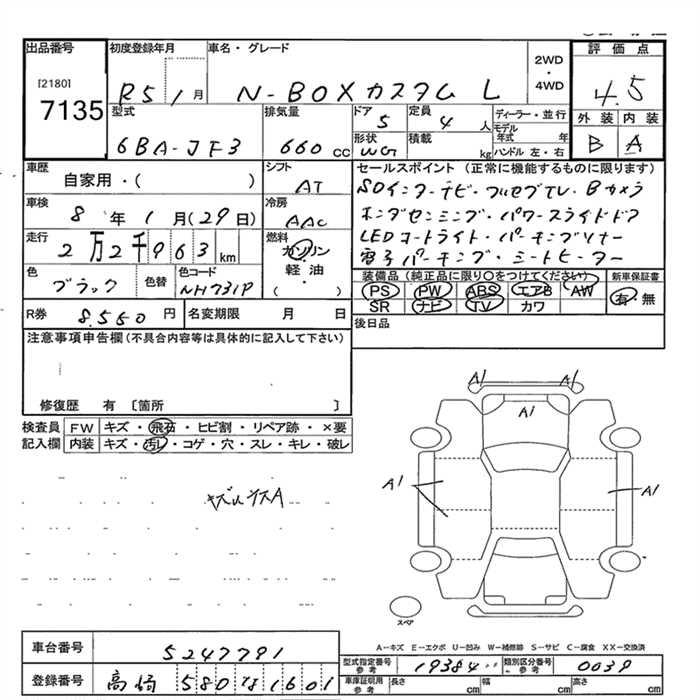 出品番号 初度登録年月 車名・グレード 2WD・4WD 評価点
[2180]
7135 R5 1月 N-BOXカスタム L 4.5
型式 排気量 ドア 定員 ディーラー・並行 外装 内装
6BA-JF3 660cc 5 4人 モデル年式 年 B A
形状 積載 ハンドル 左・右
WG kg
車歴 シフト セールスポイント(正常に機能するものに限ります)
自家用・( ) AT SDインターナビ・フルセグTV・Bカメラ
車検 冷房 ホンダセンシング・パワースライドドア
8年1月(29日) AAC LEDコートライト・パーキングソナー
走行 燃料 電子パーキング・シートヒーター
2万2千963km ガソリン・軽油・( )
装備品(純正品に限り○をつけてください) 新車保証書
色 色替 色コード PS PW ABS エアB AW 有・無
ブラック NH731P SR ナビ TV カワ
R券 8.560円 名変期限 月 日 後日品
注意事項申告欄(不具合内容等は具体的に記入して下さい)
修復歴 有 [箇所 ]
検査員 FW キズ・飛石・ヒビ割・リペア跡・×要
記入欄 内装 キズ・汚れ・コゲ・穴・スレ・キレ・破レ
A1 A1
A1
A1 A1
スペア
A-キズ E-エクボ U-凹み W-補修跡 S-サビ C-腐食 XX-交換済
車台番号 5247791
型式指定番号 参考 19384 類別区分番号 参考 0039
登録番号 高崎 580 な 1601
車庫証明用 参考 長さ cm 幅 cm 高さ cm